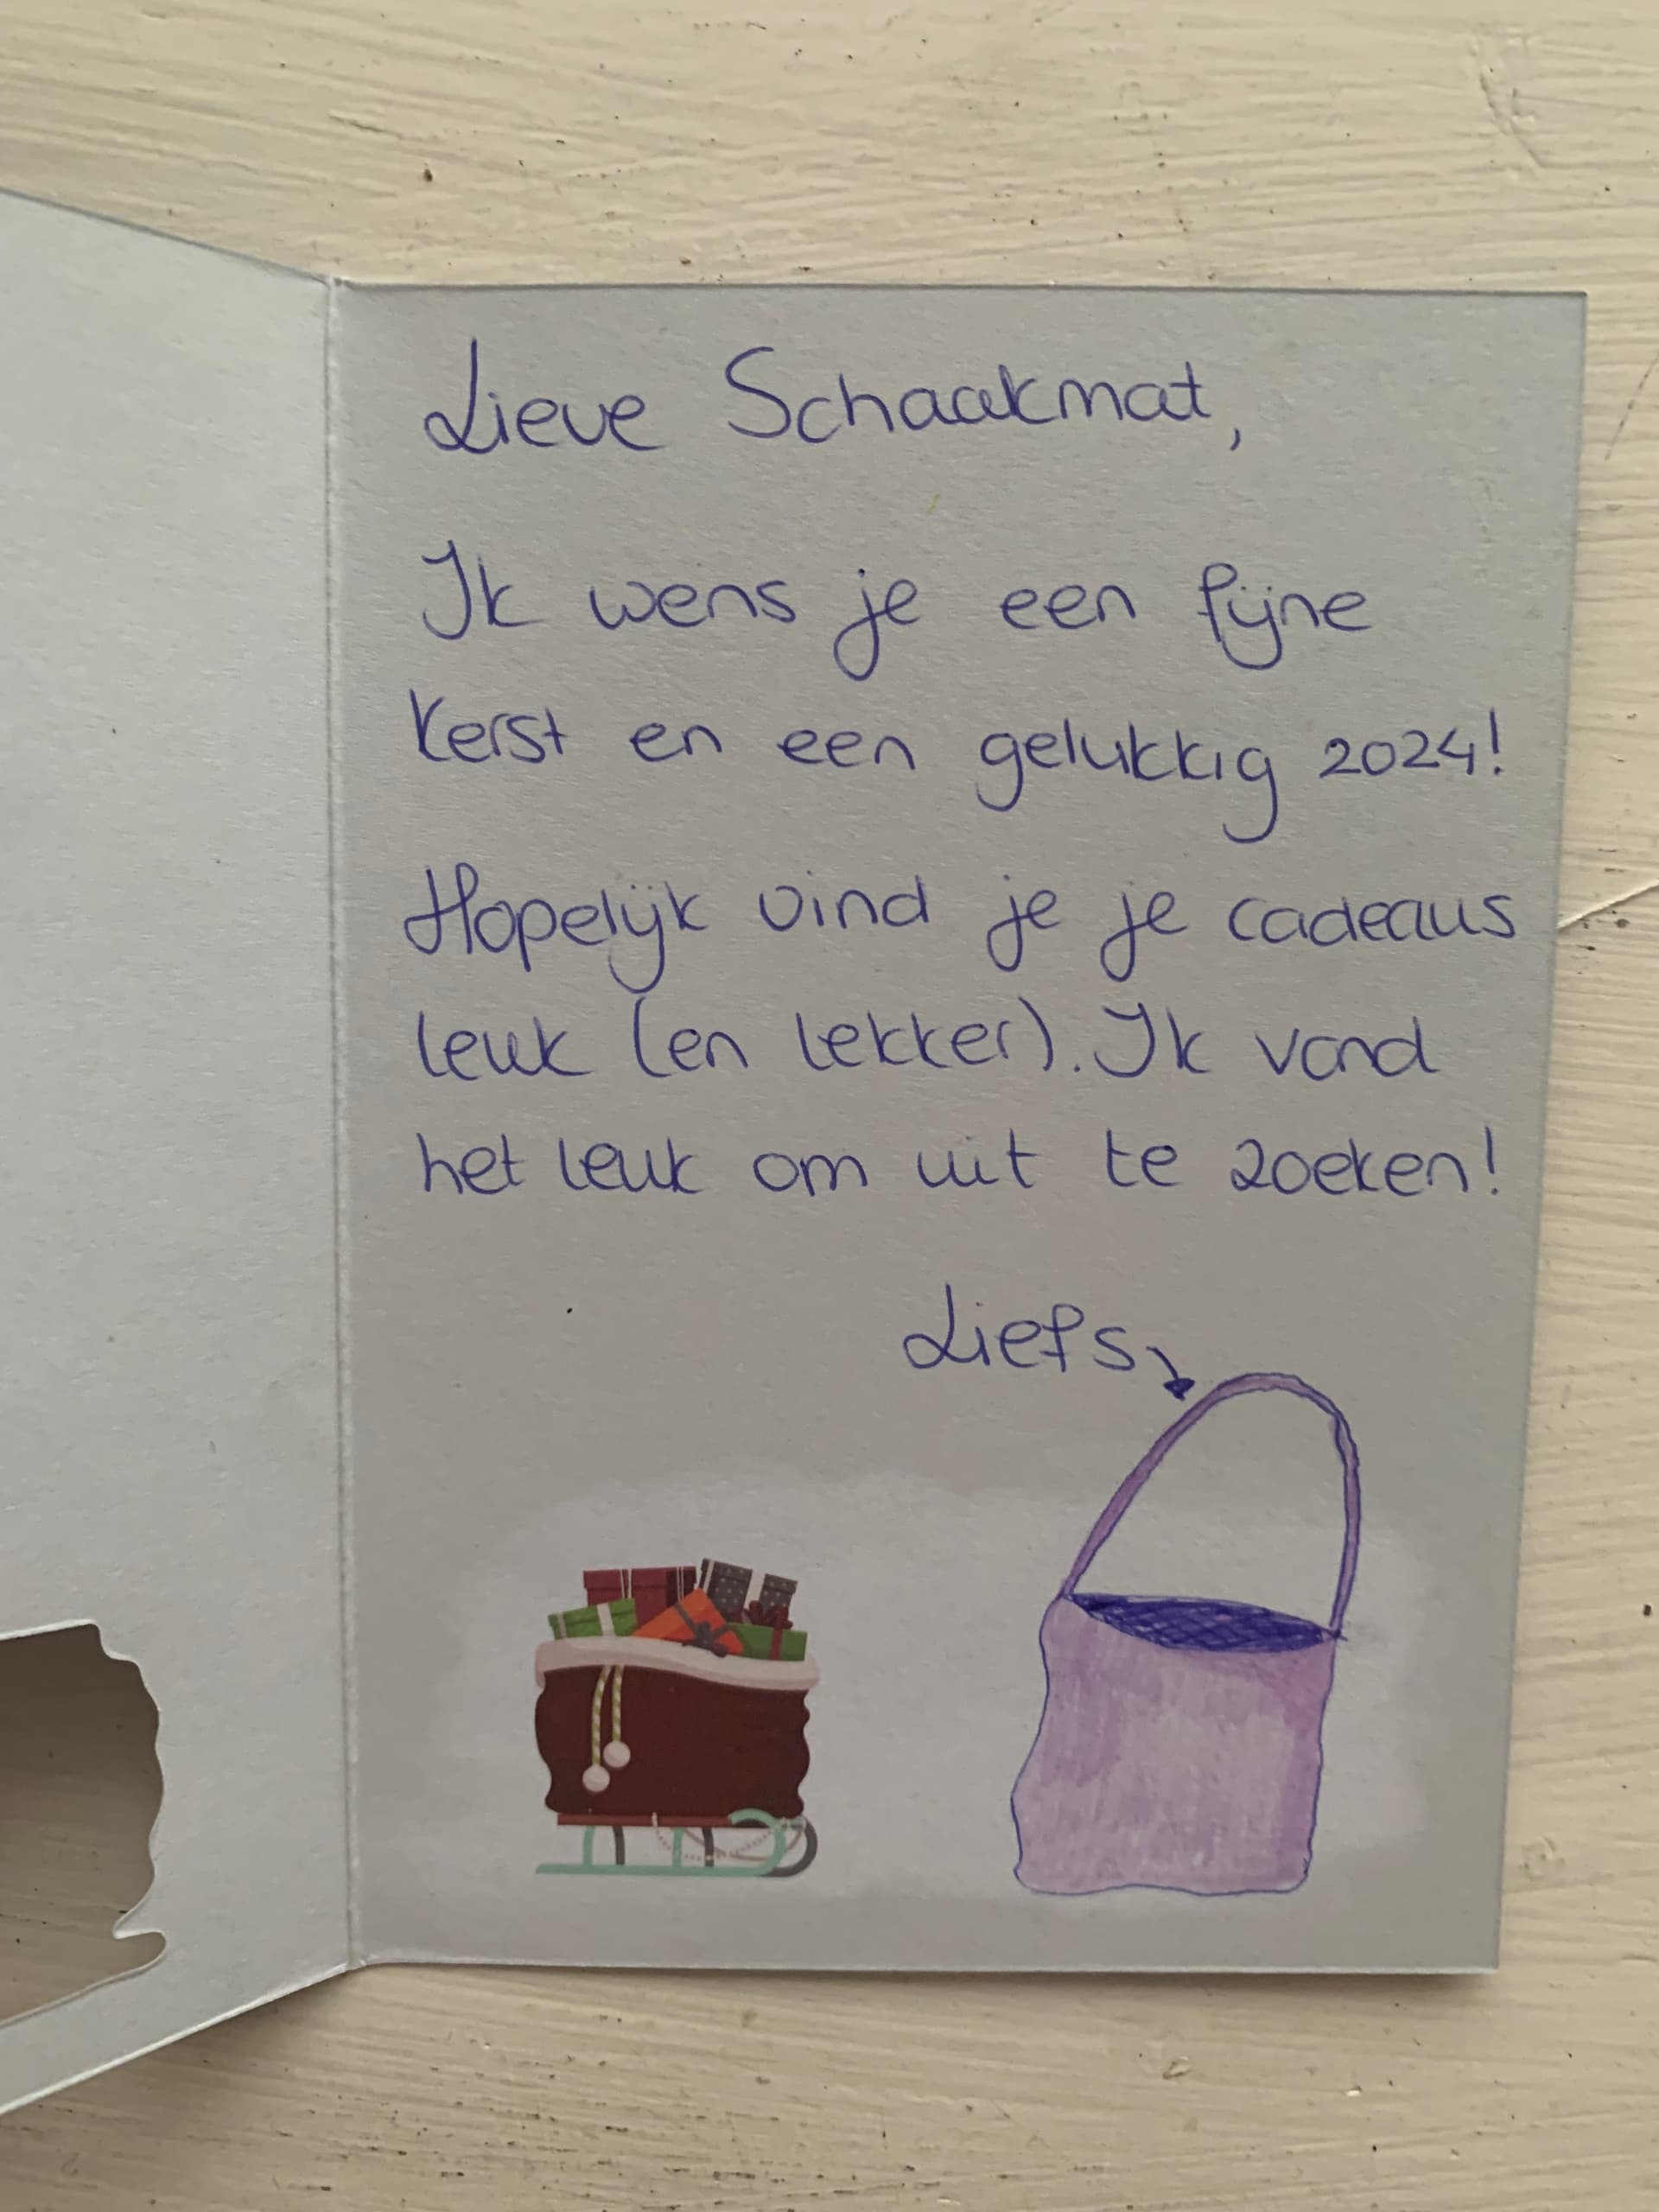 Lieve Schaakmat,
Ik wens je een fijne
kerst en een gelukkig 2024!
Hopelijk vind je je cadeaus
leuk (en lekker). Ik vond
het leuk om uit te zoeken!
Liefs